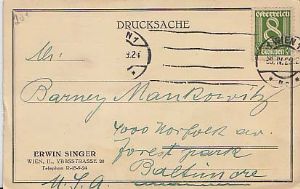 DRUCKSACHE
österreich
8
WIEN
Mr.
Barney Mankowitz
4000 Norfolk av
forest park
Baltimore
U.S.A
ERWIN SINGER
WIEN, II., YBBSSTRASSE 20